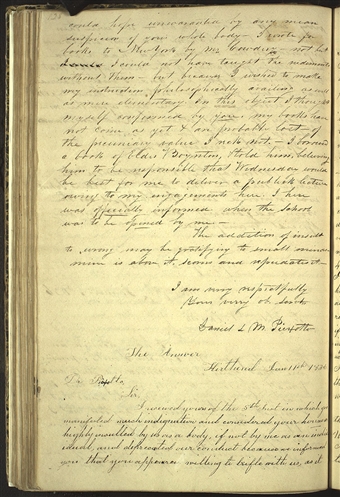 could hope unwarranted by any mean
suspicion of your whole body. I wrote for
books to New York by Mr Cowdery - not but
I could not have taught the rudiments
without them - but because I wished to make
my instruction philosophically availing as well
as mere elementary. On this object I thought
myself confirmed by you. my books have
not come as yet & are probably lost - of
the pecuniary value I reck not. - I borrowed
a book of Elder Boynton, & told him, believing
him to be responsible that Wednesday would
be best for me to deliver a publick lecture
owing to my engagements here. I here
was officially informed when the School
was to be opened by me
The addition of insult
to wrong may be gratifying to small minds
mine is above it, scorns and repudiates it
I am very respectfully
Your very ob Servt
Daniel L M Peixotto
The Answer.
Kirtland June 11th 1835
Dr Peixotto,
Sir,
I received yours of the 5th Inst in which you
manifested much indignation and considered your honor
highly insulted by us as a body, if not by me as an indiv
idual, and deprecated our conduct because we informed
you that you appeared willing to trifle with us, as it